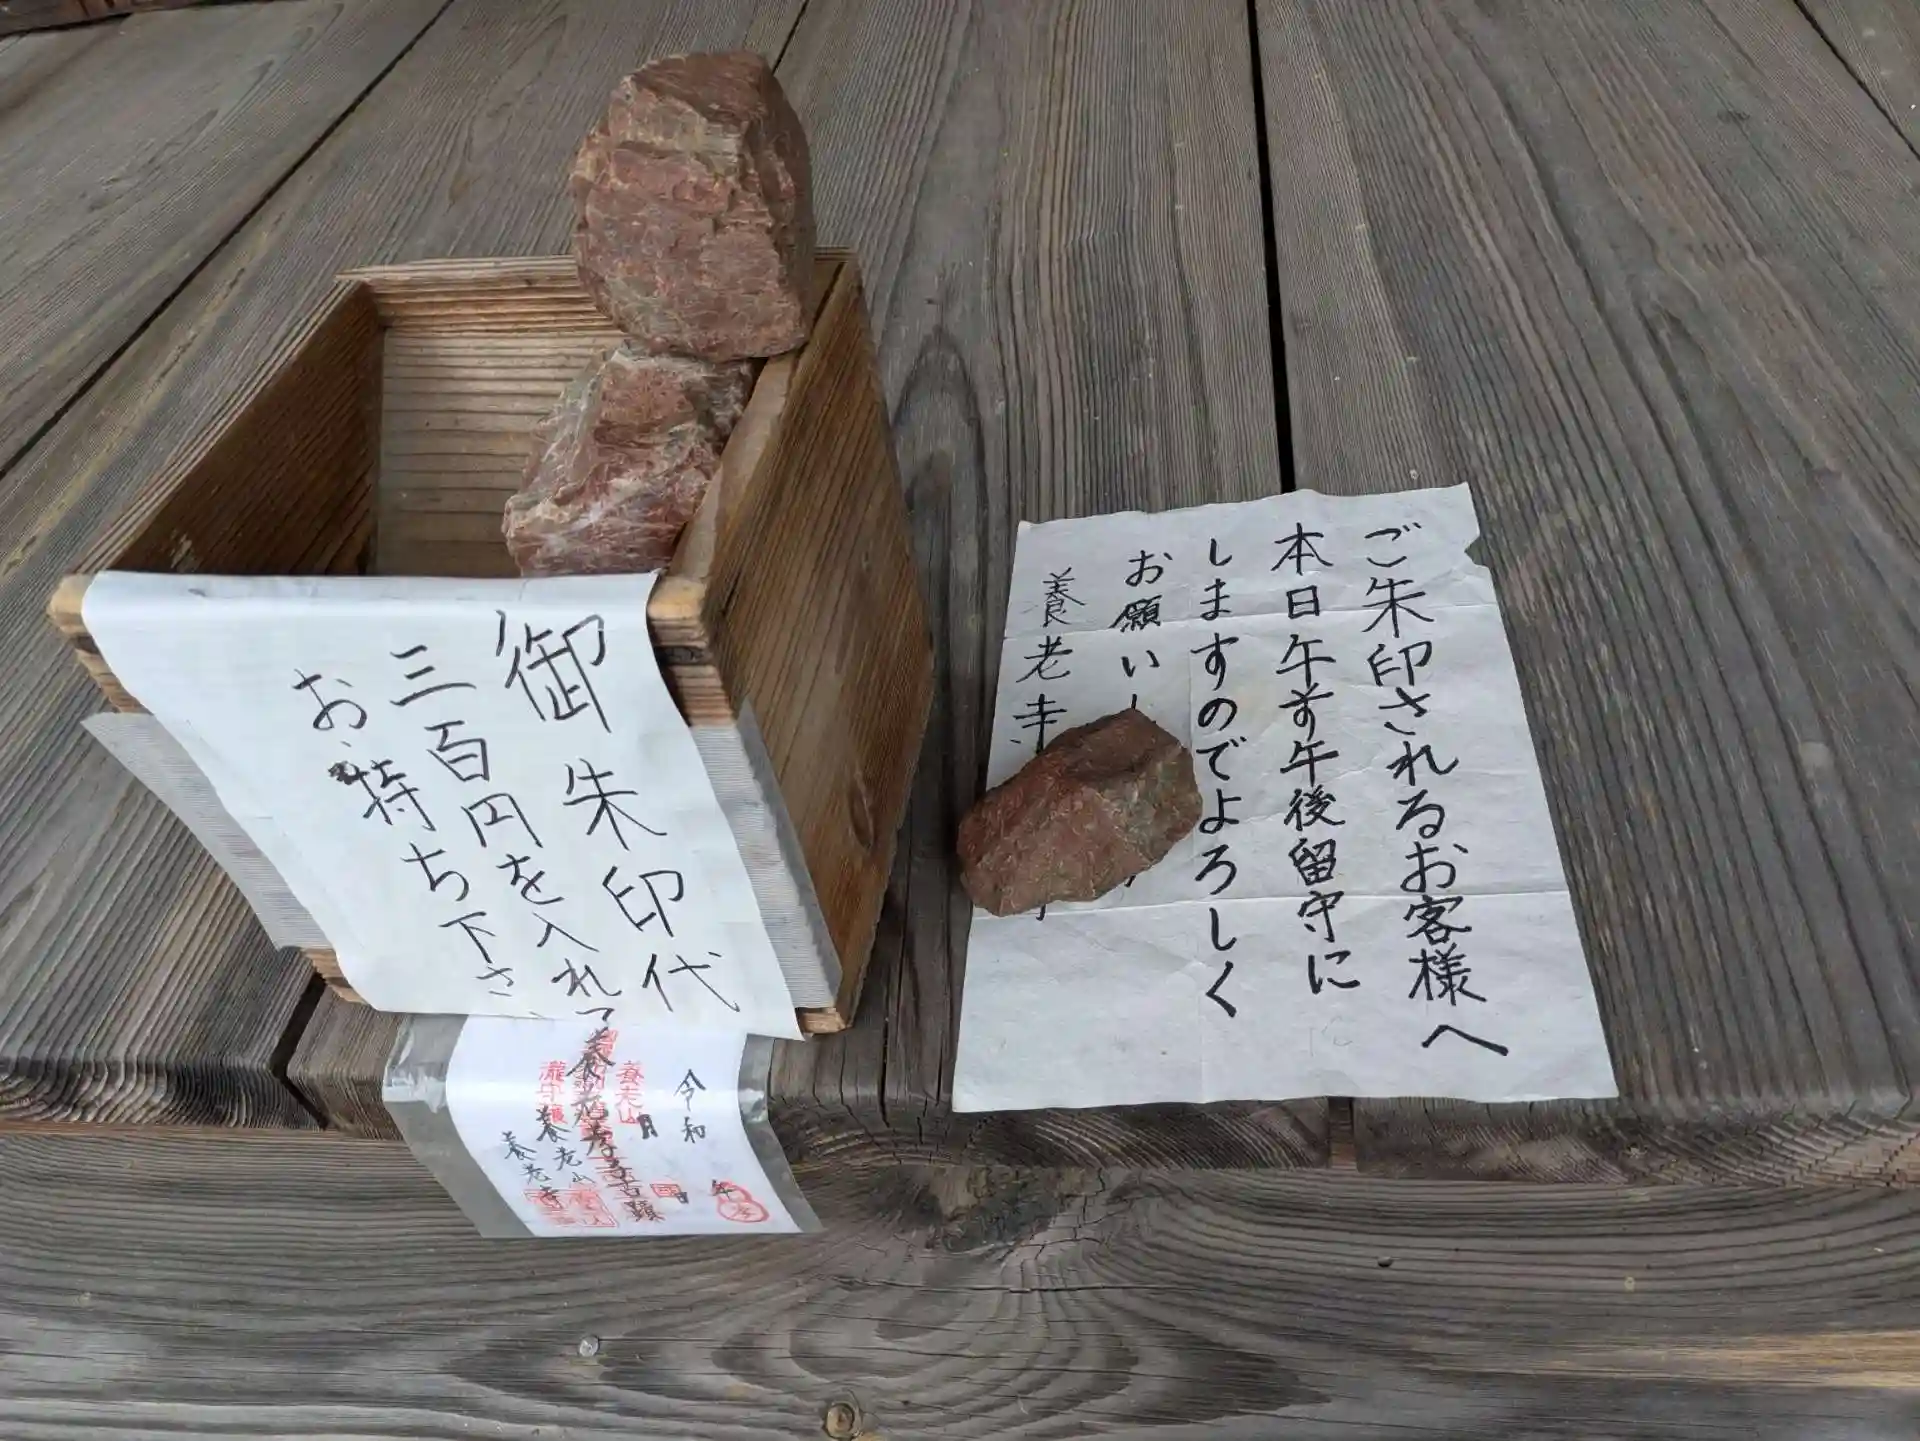 ご朱印されるお客様へ
本日午前午後留守に
しますのでよろしく
お願いし
養老寺
御朱印代
三百円を入れて
お持ち下さ
令和 年
月 日
養老山
養老孝子古蹟
養老山
養老寺